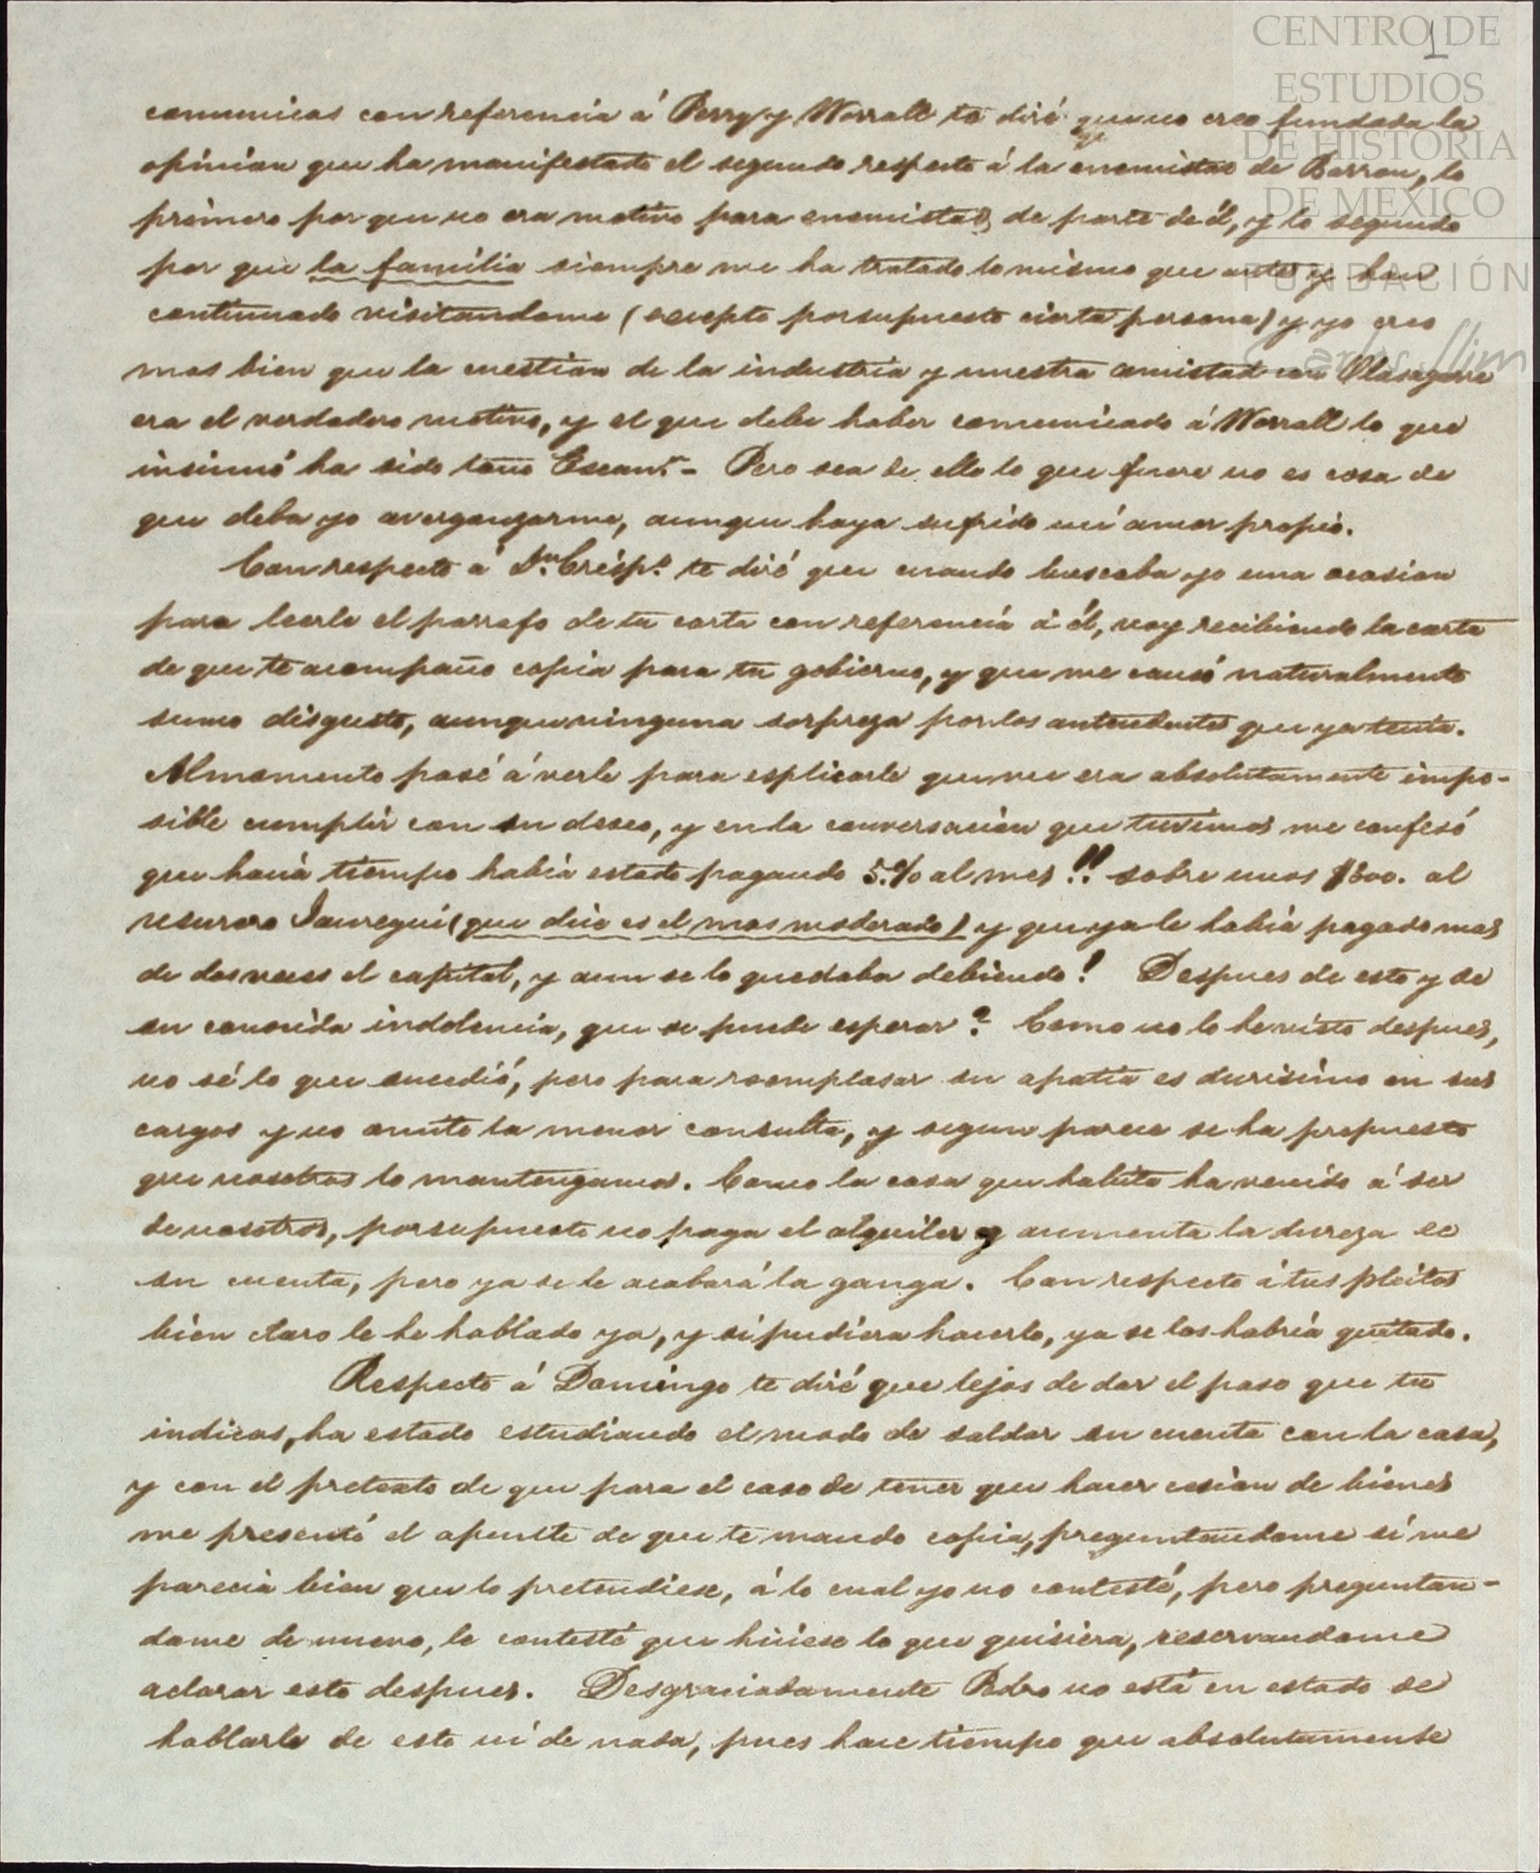 CENTRO DE
ESTUDIOS
DE HISTORIA
DE MEXICO
FUNDACIÓN
Carlos Slim
1
comunicas con referencia á Perry y Worrall te diré que no creo fundada la
opinion que ha manifestado el segundo respecto á la enemistad de Barron, lo
primero por que no era motivo para enemistad de parte de él, y lo segundo
por que la familia siempre me ha tratado lo mismo que antes y han
continuado visitandome (escepto porsupuesto cierta persona) y yo creo
mas bien que la cuestion de la industria y nuestra amistad con Olasagarre
era el verdadero motivo, y el que debe haber comunicado á Worrall lo que
insinuó ha sido Escan.n - Pero sea de ello lo que fuere no es cosa de
que deba yo avergonzarme, aunque haya sufrido mi amor propio.
Con respecto á Dn. Crisp.o te diré que cuando buscaba yo una ocasion
para leerle el parrafo de tu carta con referencia á él, voy recibiendo la carta
de que te acompaño copia para tu gobierno, y que me causó naturalmente
sumo disgusto, aunque ninguna sorpreza por los antecedentes que ya tenia.
Al momento pasé á verle para esplicarle que me era absolutamente impo-
sible cumplir con su deseo, y en la conversacion que tuvimos me confesó
que hacia tiempo habia estado pagando 5.% al mes!! sobre unos $600. al
usurero Jauregui (que dice es el mas moderado) y que ya le habia pagado mas
de dos veces el capital, y aun se lo quedaba debiendo! Despues de esto y de
su conocida indolencia, que se puede esperar? Como no lo he visto despues,
no sé lo que sucedió, pero para reemplasar su apatia es durisimo en sus
cargos y no omite la menor consulta, y segun parece se ha propuesto
que nosotros lo mantengamos. Como la casa que habita ha venido á ser
de nosotros, porsupuesto no paga el alquiler y aumenta la dureza de
su cuenta, pero ya se le acabará la ganga. Con respecto á tus pleitos
bien claro le he hablado ya, y si pudiera hacerlo, ya se los habria quitado.
Respecto á Domingo te diré que lejos de dar el paso que tu
indicas, ha estado estudiando el modo de saldar su cuenta con la casa,
y con el pretexto de que para el caso de tener que hacer cesion de bienes
me presentó el apunte de que te mando copia, preguntandome si me
parecia bien que lo pretendiese, á lo cual yo no contesté, pero preguntan-
dome de nuevo, le contesté que hiciese lo que quisiera, reservandome
aclarar esto despues. Desgraciadamente Pedro no está en estado de
hablarle de esto ni de nada, pues hace tiempo que absolutamente